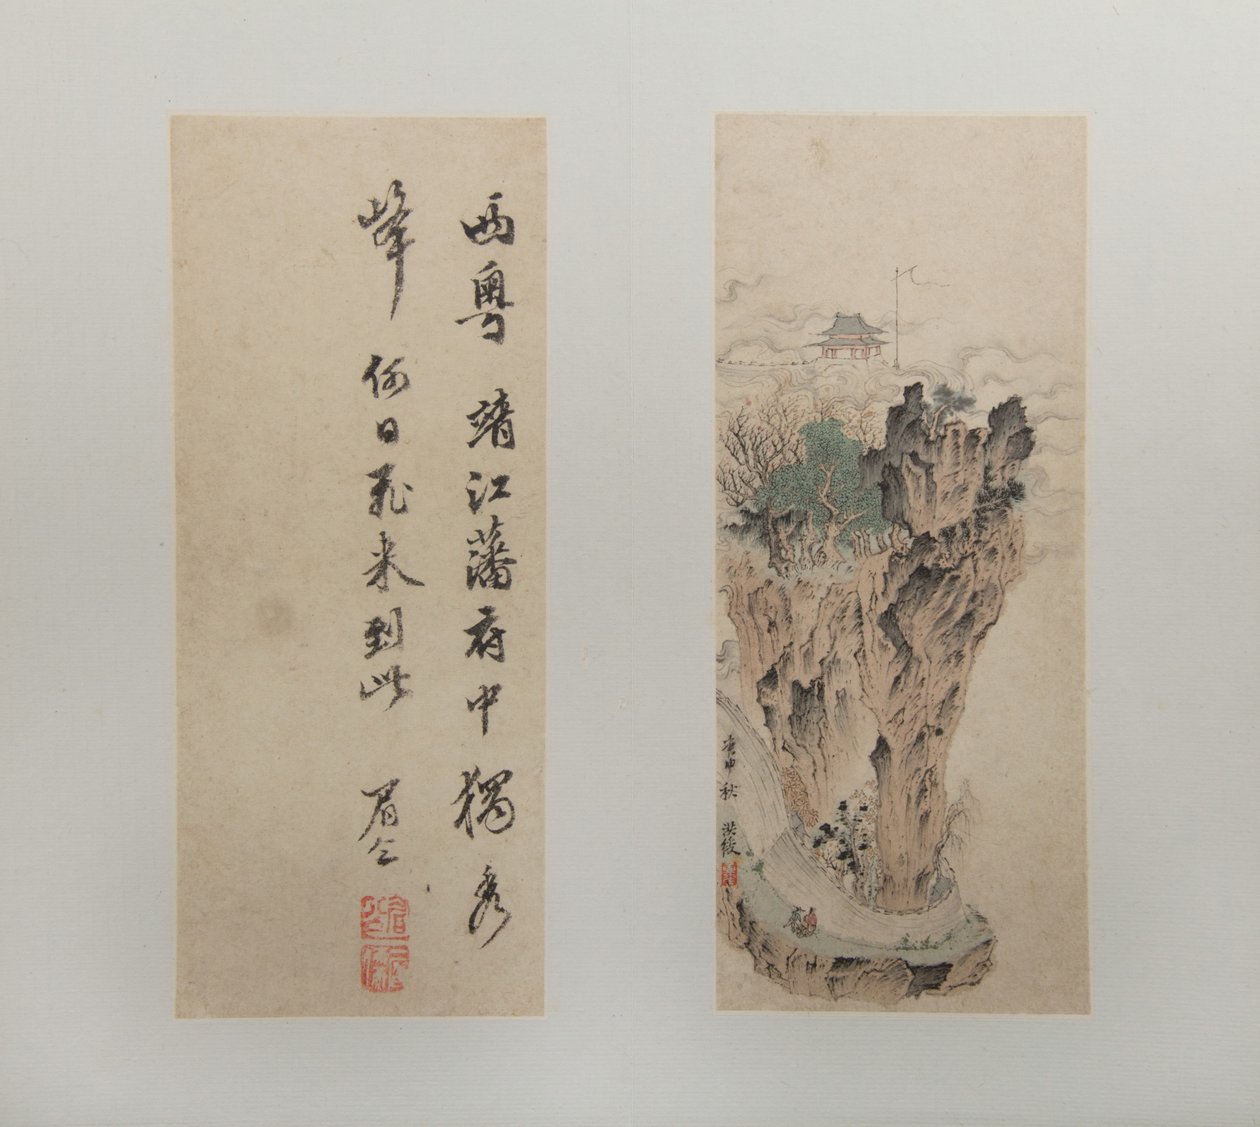 庚申秋 洪綬
西粵 靖江藩府中 獨秀
峰 何日飛來到此 眉公